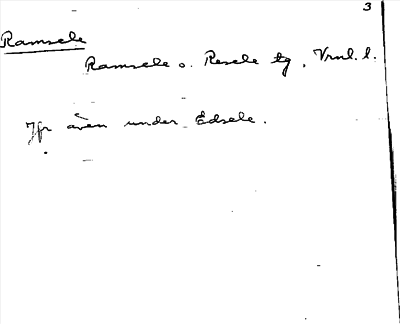 3
Ramsele
Ramsele o. Resele tg, Vrnl. l.
Jfr även under Edsele.